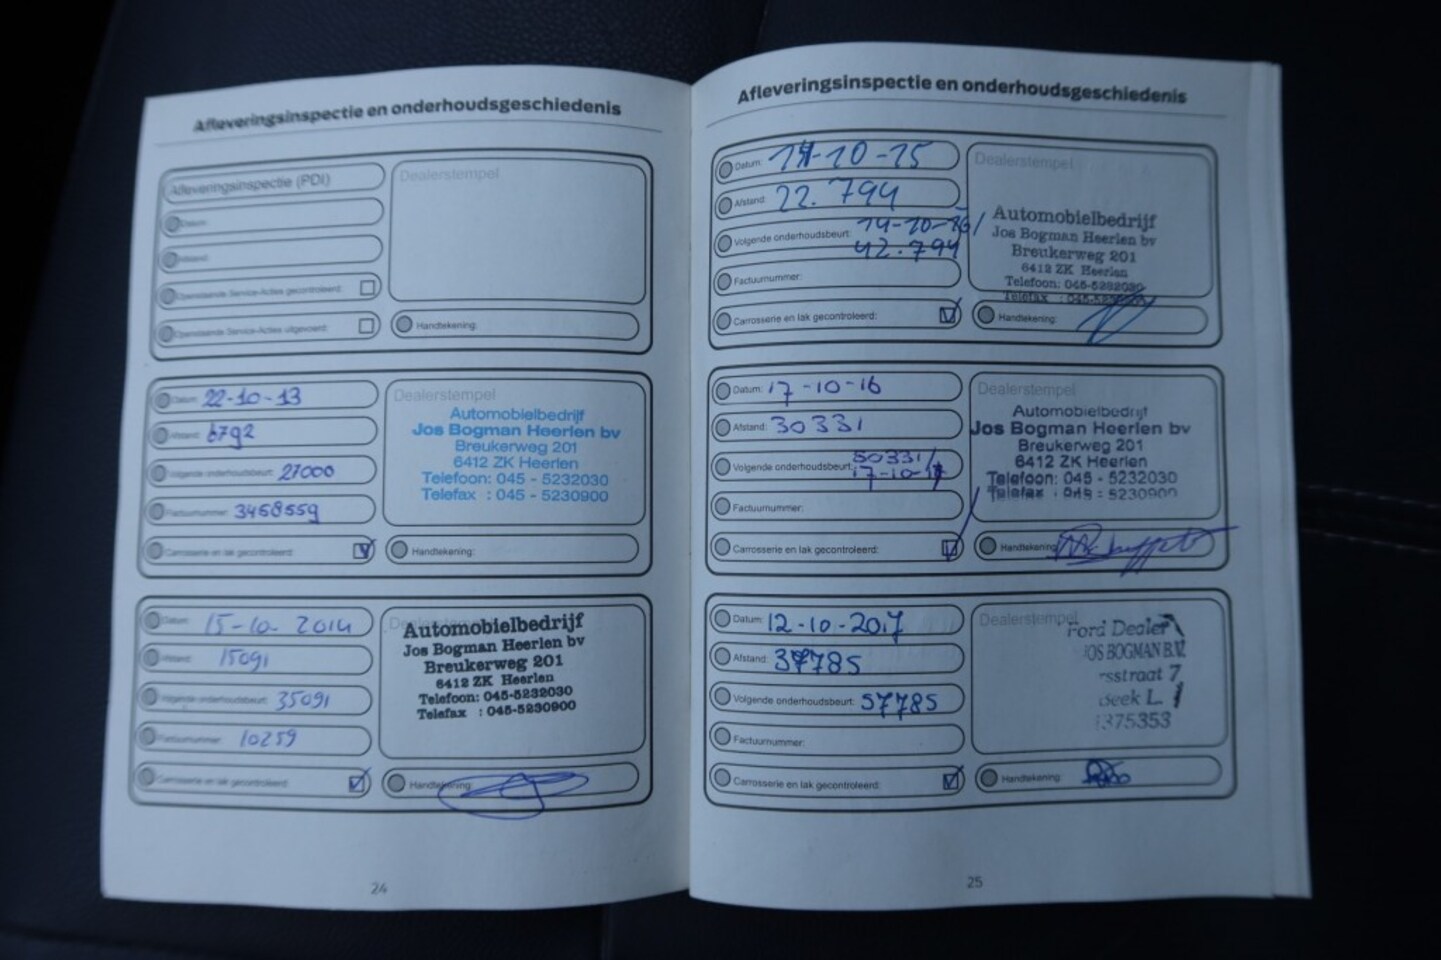 Afleveringsinspectie en onderhoudsgeschiedenis
Afleveringsinspectie (PDI)
Datum:
Afstand:
Openstaande Service-Acties gecontroleerd:
Openstaande Service-Acties uitgevoerd:
Dealerstempel
Handtekening:
Datum: 22-10-13
Afstand: 6792
Volgende onderhoudsbeurt: 27000
Factuurnummer: 3458559
Carrosserie en lak gecontroleerd:
Dealerstempel
Automobielbedrijf
Jos Bogman Heerlen bv
Breukerweg 201
6412 ZK Heerlen
Telefoon: 045 - 5232030
Telefax : 045 - 5230900
Handtekening:
Datum: 15-10-2014
Afstand: 15091
Volgende onderhoudsbeurt: 35091
Factuurnummer: 10259
Carrosserie en lak gecontroleerd:
Automobielbedrijf
Jos Bogman Heerlen bv
Breukerweg 201
6412 ZK Heerlen
Telefoon: 045-5232030
Telefax : 045-5230900
Handtekening:
24
Afleveringsinspectie en onderhoudsgeschiedenis
Datum: 14-10-15
Afstand: 22.794
Volgende onderhoudsbeurt: 14-10-16/
42.794
Factuurnummer:
Carrosserie en lak gecontroleerd:
Dealerstempel
Automobielbedrijf
Jos Bogman Heerlen bv
Breukerweg 201
6412 ZK Heerlen
Telefoon: 045-5232030
Telefax : 045-5230900
Handtekening:
Datum: 17-10-16
Afstand: 30331
Volgende onderhoudsbeurt: 50331/
17-10-17
Factuurnummer:
Carrosserie en lak gecontroleerd:
Dealerstempel
Automobielbedrijf
Jos Bogman Heerlen bv
Breukerweg 201
6412 ZK Heerlen
Telefoon: 045 - 5232030
Telefax : 045 - 5230900
Handtekening:
Datum: 12-10-2017
Afstand: 37785
Volgende onderhoudsbeurt: 57785
Factuurnummer:
Carrosserie en lak gecontroleerd:
Dealerstempel
Ford Dealer
JOS BOGMAN B.V.
rsstraat 7
Beek L.
375353
Handtekening:
25